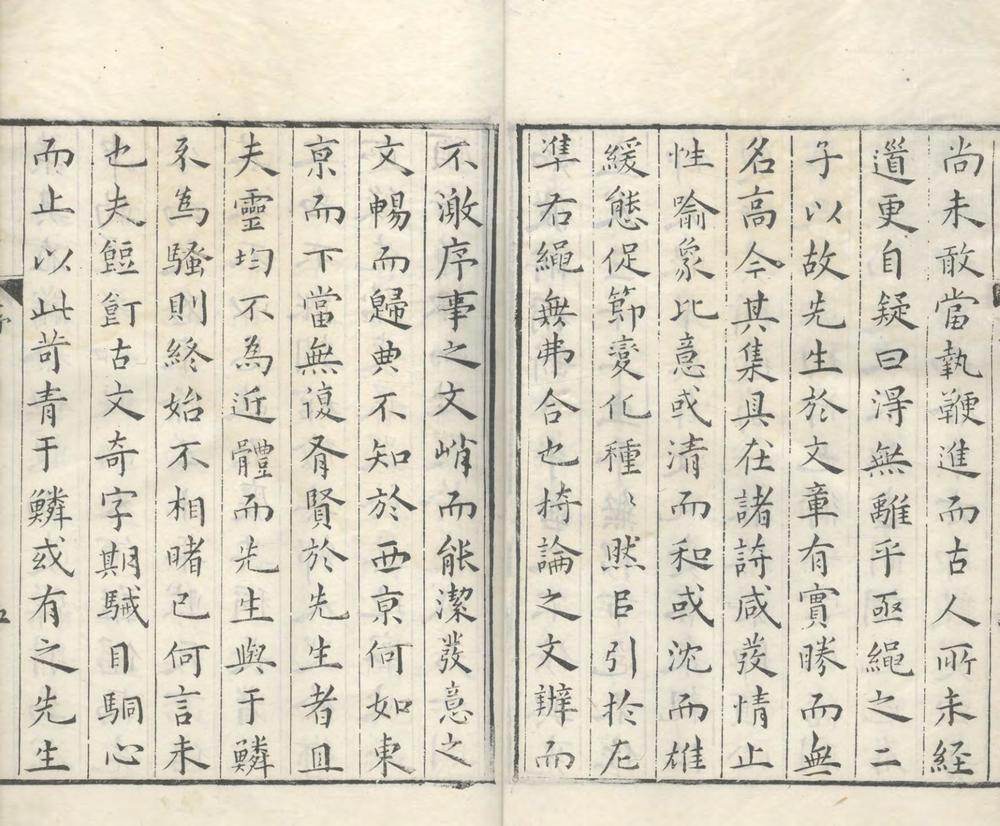 尚未敢當執鞭進而古人所未經
道更自疑曰得無離乎亟繩之二
子以故先生於文章有實勝而無
名高今其集具在諸詩咸發情止
性喻象比意或清而和或沈而雄
緩態促節變化種〻然㠯引於左
準右繩無弗合也持論之文辯而
不激序事之文峭而能潔發意之
文暢而歸典不知於西京何如東
京而下當無復有賢於先生者且
夫靈均不為近體而先生與于鱗
不為騷則終始不相睹已何言未
也夫饾飣古文奇字期駴目駧心
而止以此苛青于鱗或有之先生
序
五